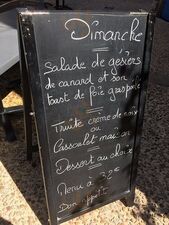 Dimanche
Salade de gésiers
de canard et son
toast de foie gras poêlé
Truite crème de noix
ou
Cassoulet maison
Dessert au choix
Menu à 22€
Bon App